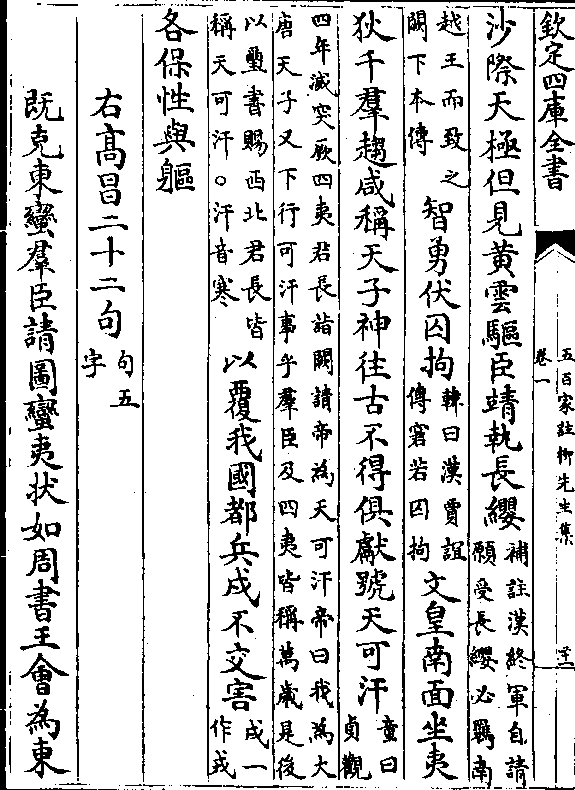 欽定四庫全書
五百家註柳先生集
卷一
沙際天極但見黃雲驅臣靖執長纓補註漢終軍自請願受長纓必羈南
越王而致之闕下本傳智勇伏囚拘韓曰漢賈誼傳窘若囚拘文皇南面坐夷
狄千羣趨咸稱天子神往古不得俱獻號天可汗童曰貞觀
四年滅突厥四夷君長詣闕請帝為天可汗帝曰我為大唐天子又下行可汗事乎羣臣及四夷皆稱萬歲是後
以璽書賜西北君長皆稱天可汗○汗音寒以覆我國都兵戍不交害戍一作戎
各保性與軀
右高昌二十二句句五字
既克東蠻羣臣請圖蠻夷狀如周書王會為東